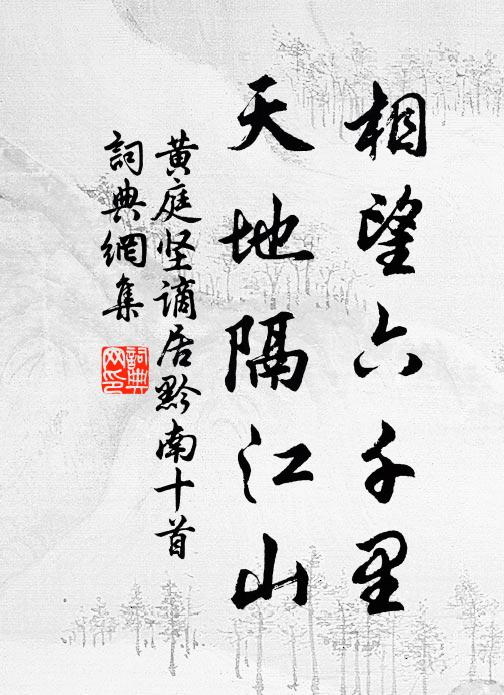 相望六千里
天地隔江山
黄庭坚謫居黔南十首
詞典網集
詞典
网印